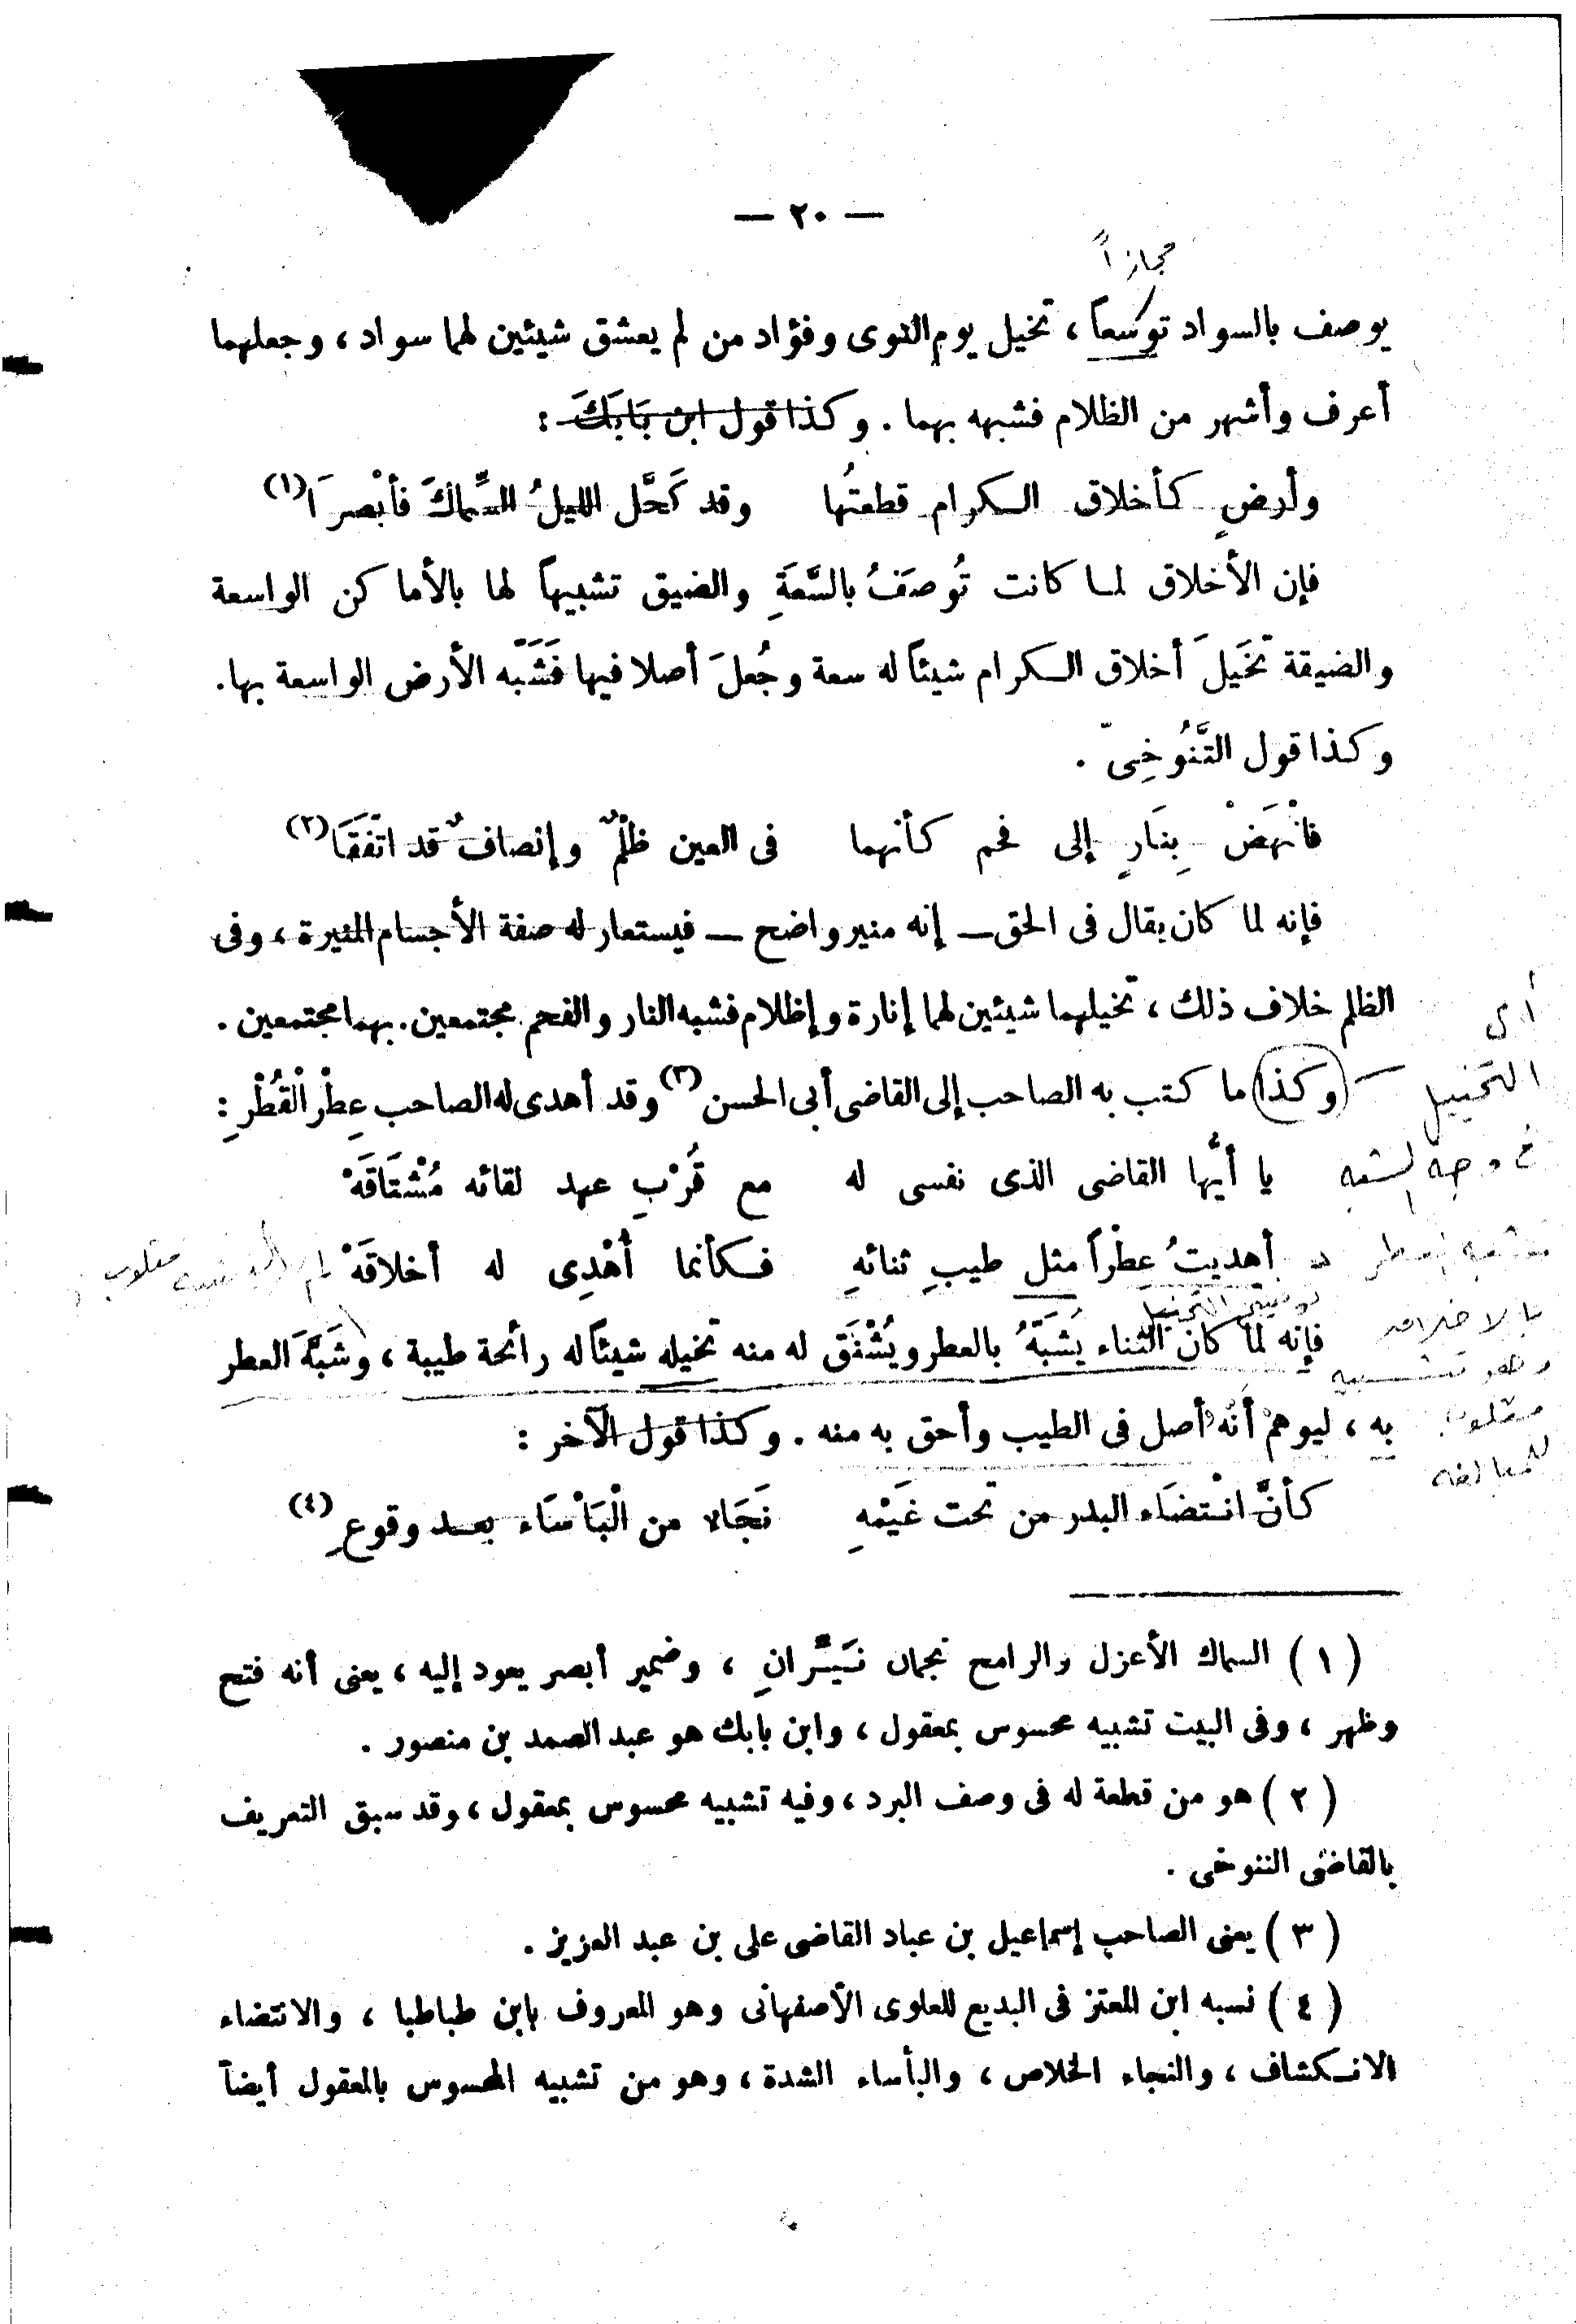 — ٢٠ —
مجازاً
يوصف بالسواد توسعاً ، تخيل يوم النوى وفؤاد من لم يعشق شيئين لهما سواد ، وجعلهما
أعرف وأشهر من الظلام فشبهه بهما . وكذا قول ابن بَابَكَ :
وأرضٍ كأخلاق الكرام قطعتُها وقد كَحَّل الليلُ السِّماكَ فأبْصرَا (١)
فإن الأخلاق لما كانت تُوصَفُ بالسَّعَةِ والضيق تشبيهاً لها بالأماكن الواسعة
والضيقة تخَيلَ أخلاق الكرام شيئاً له سعة وجُعلَ أصلا فيها فَشَبَّه الأرض الواسعة بها .
وكذا قول التَّنُوخِىّ .
فانْهَضْ بِنَارٍ إلى فحم كأنهما فى العين ظُلْمٌ وإنصافٌ قد اتّفَقَا (٢)
فإنه لما كان يقال فى الحق — إنه منير واضح — فيستعار له صفة الأجسام المنيرة ، وفى
الظلم خلاف ذلك ، تخيلهما شيئين لهما إنارة وإظلام فشبه النار والفحم مجتمعين . بهما مجتمعين .
أى
التخييل
وكذا ما كتب به الصاحب إلى القاضى أبى الحسن (٣) وقد أهدى له الصاحب عِطْر الْقُطْرِ :
وجه الشبه
يا أيُّها القاضى الذى نفسى له مع قُرْبِ عهد لقائه مُشْتَاقَهْ
أهديتُ عِطْراً مثل طيبِ ثنائهِ فكأنما أُهْدِى له أخلاقَهْ
مقلوب
بالاخلاق
فإنه لما كان الثناء يُشَبَّهُ بالعطر ويُشْتَق له منه تخيله شيئاً له رائحة طيبة ، وشَبَّهَ العطر
وهو تشبيه
مقلوب
للمبالغة
به ، ليوهم أنه أصل فى الطيب وأحق به منه . وكذا قول الآخر :
كأنَّ انْتضَاء البدر من تحت غَيْمهِ نَجَاء من الْبَأْسَاء بعد وقوعِ (٤)
( ١ ) السماك الأعزل والرامح نجمان نَيِّرانِ ، وضمير أبصر يعود إليه ، يعنى أنه فتح
وظهر ، وفى البيت تشبيه محسوس بمعقول ، وابن بابك هو عبد الصمد بن منصور .
( ٢ ) هو من قطعة له فى وصف البرد ، وفيه تشبيه محسوس بمعقول ، وقد سبق التعريف
بالقاضى التنوخى .
( ٣ ) يعنى الصاحب إسماعيل بن عباد القاضى على بن عبد العزيز .
( ٤ ) نسبه ابن المعتز فى البديع للعلوى الأصفهانى وهو المعروف بابن طباطبا ، والانتضاء
الانكشاف ، والنجاء الخلاص ، والبأساء الشدة ، وهو من تشبيه المحسوس بالمعقول أيضاً